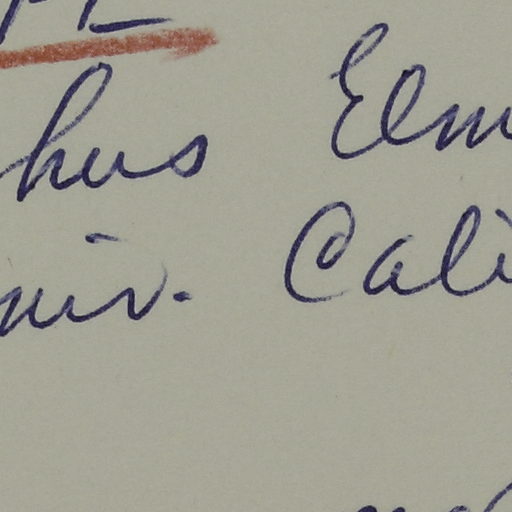 hus Elm
niv. Cali